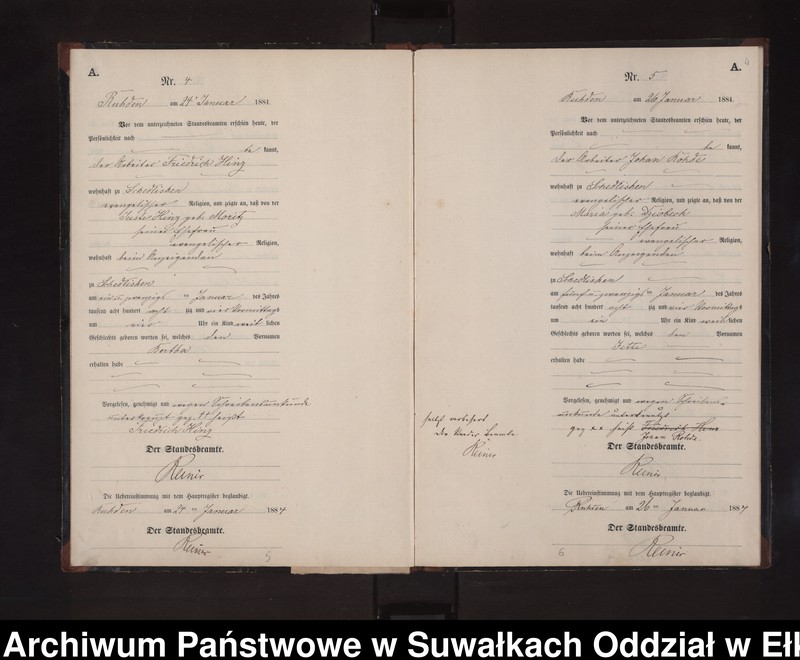 A.
Nr. 4
Ruhden am 24 Januar 1884
Vor dem unterzeichneten Standesbeamten erschien heute, der
Persönlichkeit nach
be kannt,
der Arbeiter Friedrich Hinz
wohnhaft zu Schedlisken
evangelischer Religion, und zeigte an, daß von der
Hinz geb. Moritz
seiner Ehefrau
evangelischer Religion,
wohnhaft beim Anzeigenden
zu Schedlisken
am ein u zwanzigs ten Januar des Jahres
tausend acht hundert acht zig und vier Vormittags
um vier Uhr ein Kind weib lichen
Geschlechts geboren worden sei, welches den Vornamen
Bertha
erhalten habe
Vorgelesen, genehmigt und wegen Schreibensunkunde
unterkreuzt gez. ++ heißt
Friedrich Hinz
Der Standesbeamte.
Reiner
Die Uebereinstimmung mit dem Hauptregister beglaubigt.
Ruhden am 24 ten Januar 1884
Der Standesbeamte.
Reiner
5
A.
Nr. 5
Ruhden am 26 Januar 1884
Vor dem unterzeichneten Standesbeamten erschien heute, der
Persönlichkeit nach
be kannt,
der Arbeiter Johan Rohde
wohnhaft zu Schedlisken
evangelischer Religion, und zeigte an, daß von der
Maria geb.
seiner Ehefrau
evangelischer Religion,
wohnhaft beim Anzeigenden
zu Schedlisken
am fünf u zwanzigs ten Januar des Jahres
tausend acht hundert acht zig und vier Vormittags
um ein Uhr ein Kind weib lichen
Geschlechts geboren worden sei, welches den Vornamen
Jette
erhalten habe
Vorgelesen, genehmigt und wegen Schreibens-
unkunde unterkreuzt
gez ++ heißt Friedrich Hinz
Johan Rohde
Der Standesbeamte.
Reiner
Die Uebereinstimmung mit dem Hauptregister beglaubigt.
Ruhden am 26 ten Januar 1884
Der Standesbeamte.
Reiner
6
Reiner
Archiwum Państwowe w Suwałkach Oddział w Ełk